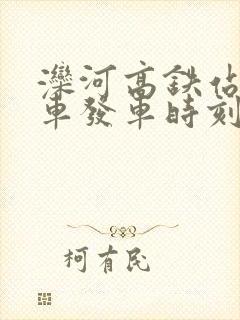 灤河高鉄佔
車發車時刻
柯有民